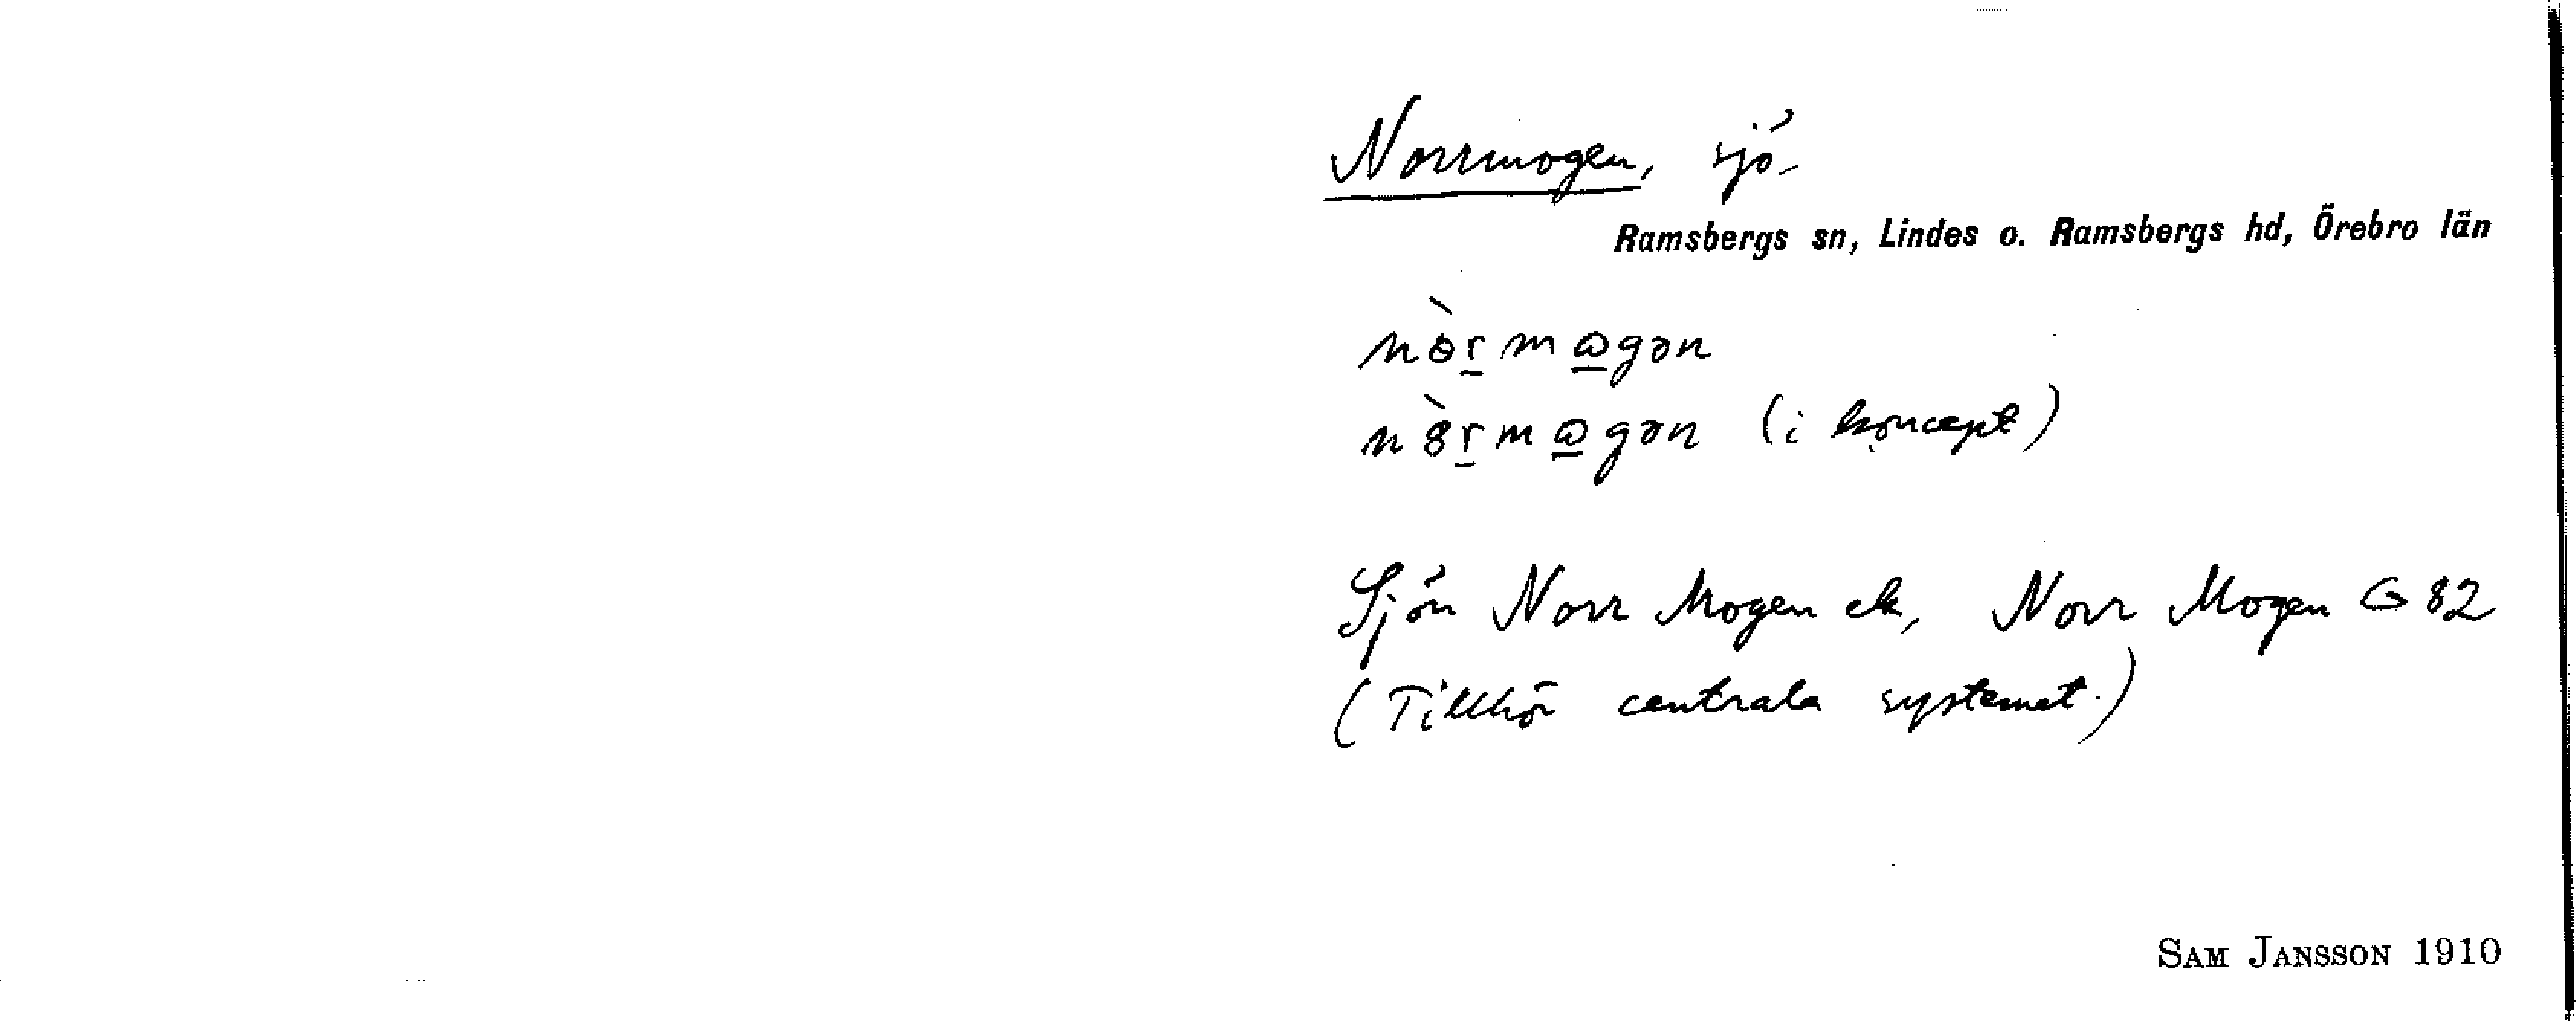 Norrmogen, sjö
Ramsbergs sn, Lindes o. Ramsbergs hd, Örebro län
nòrmωgən
nòrmωgən (i koncept)
Sjön Norr Mogen ek, Norr Mogen G 82
(Tillhör centrala systemet.)
SAM JANSSON 1910